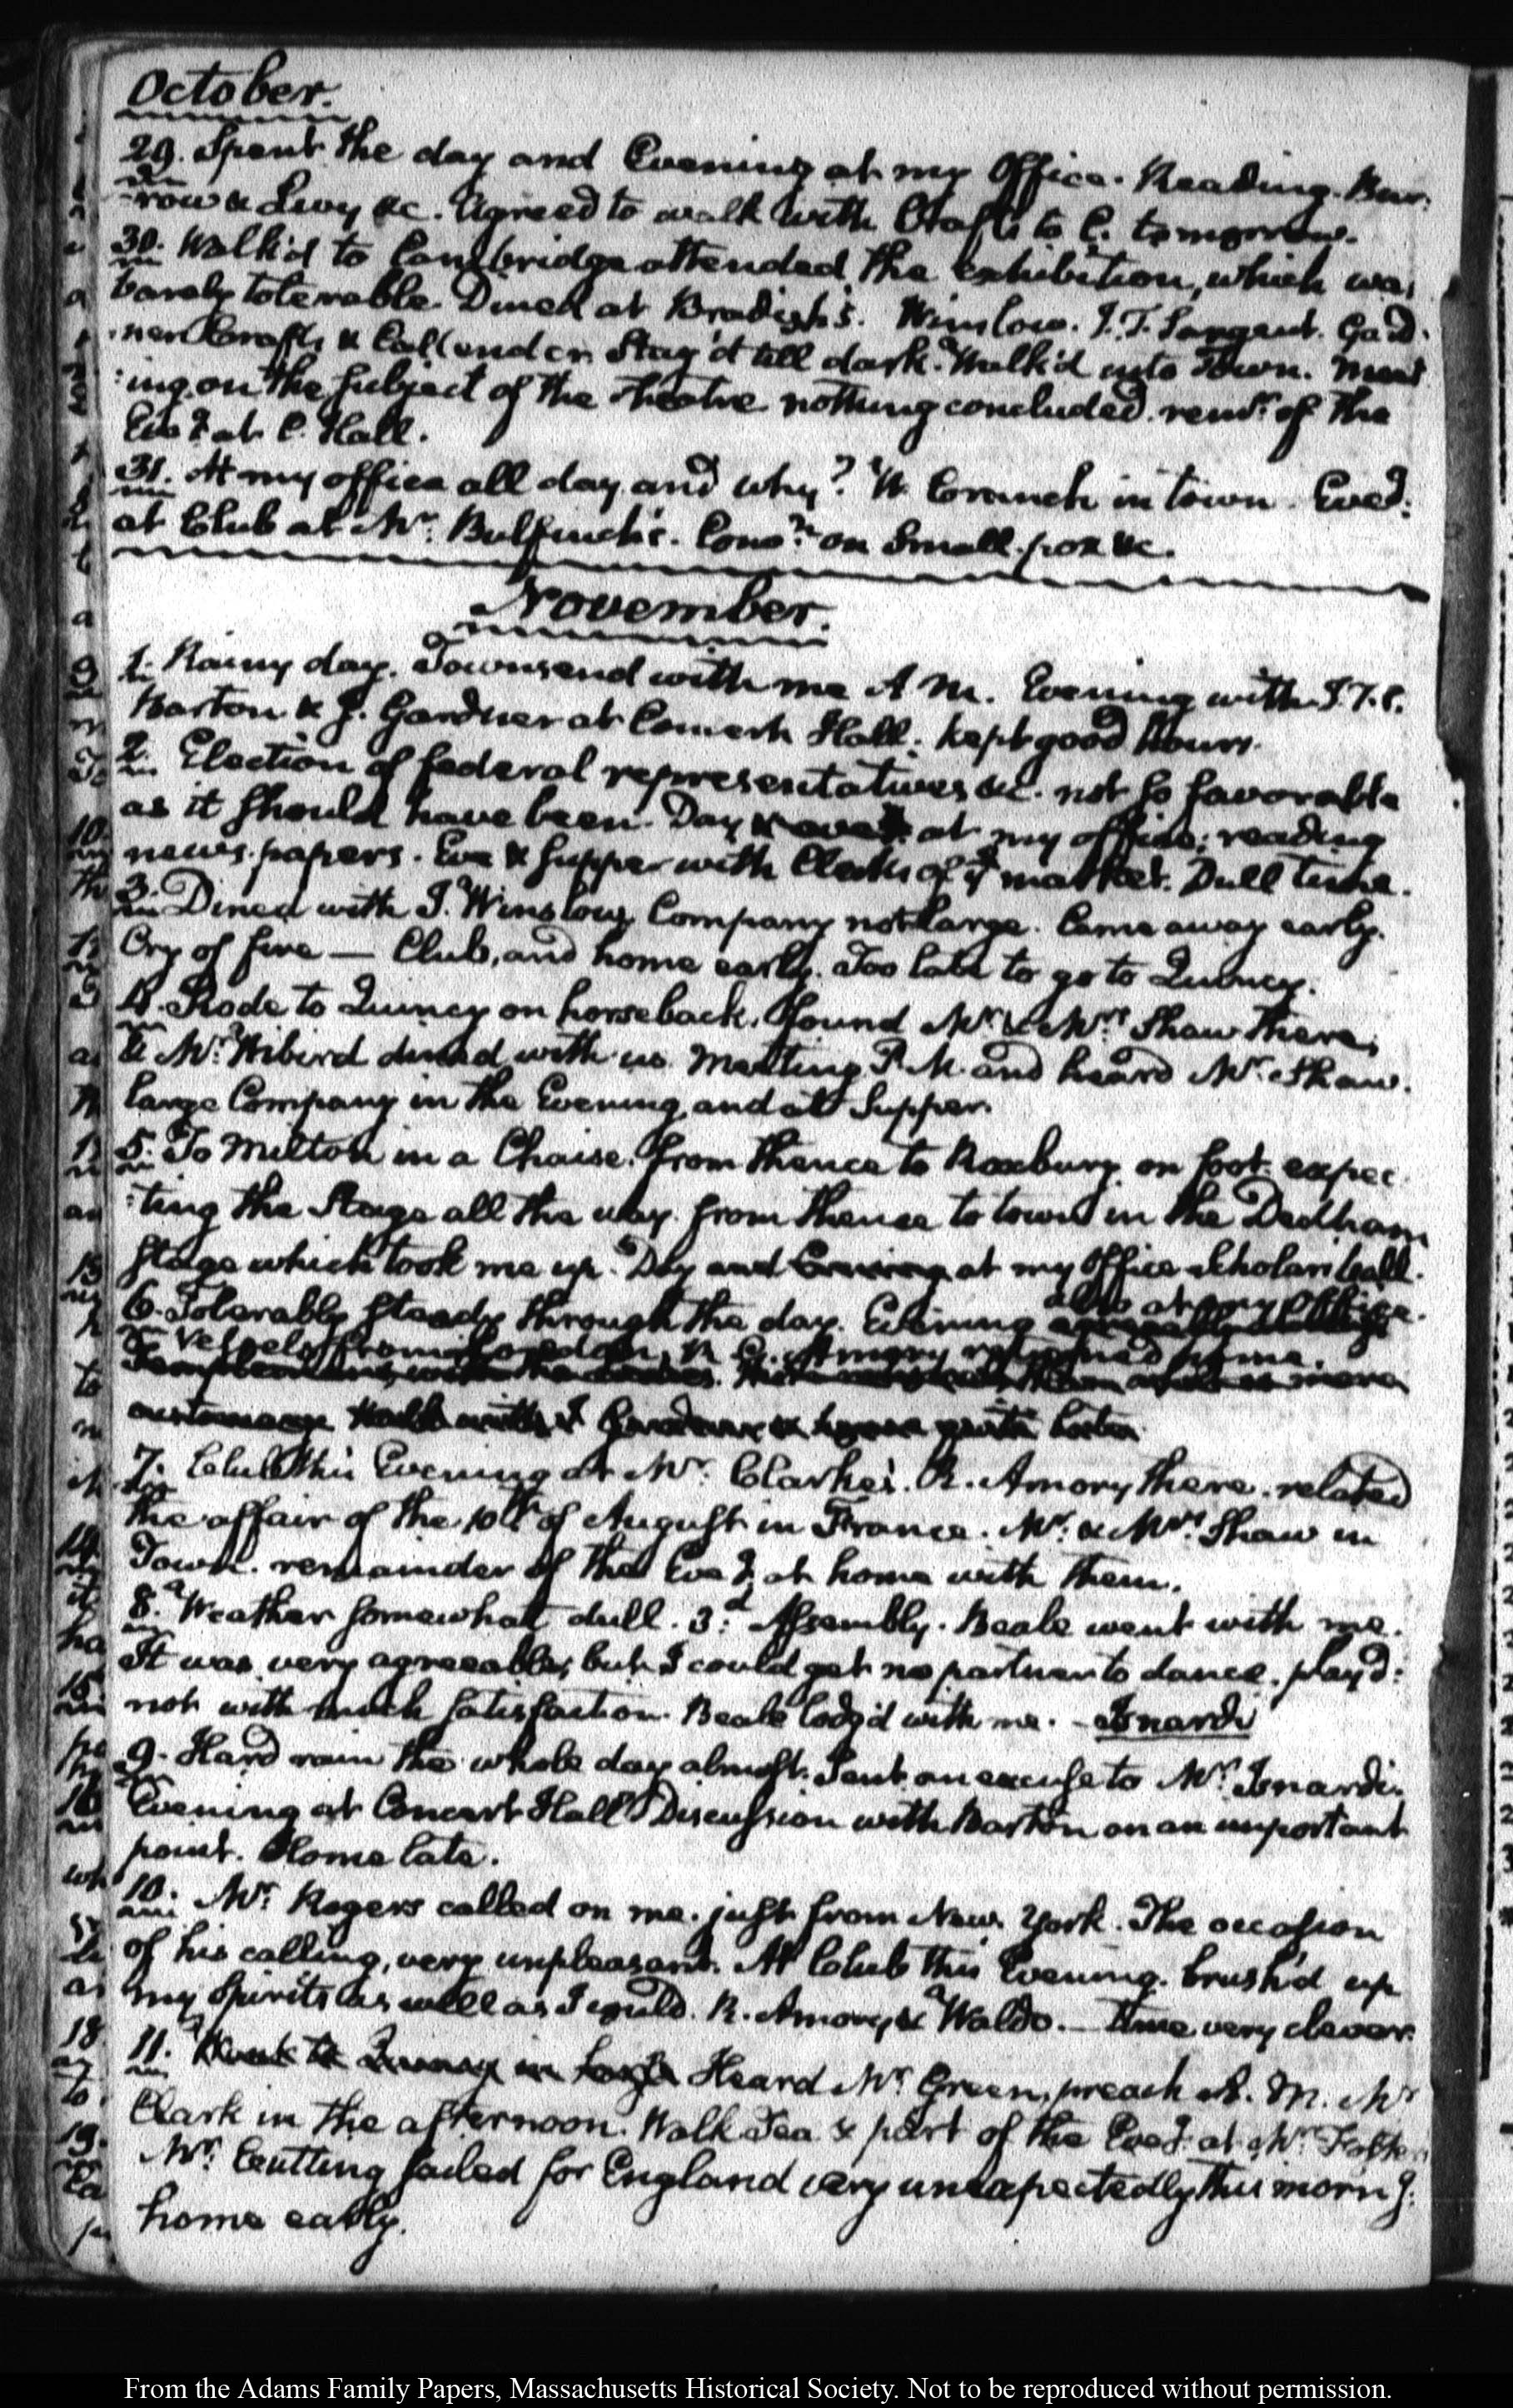 October.
29. Spent the day and Evening at my Office. Reading. Bur:
-row & Livy &c. Agreed to walk with Crafts to C. tomorrow.
30. Walk'd to Cambridge attended the exhibition, which was
barely tolerable. Dined at Bradish's. Winslow. J. T. Sargent. Gard:
:ner Crafts & Callender. Stay'd till dark. Walk'd into Town. Meet
:ing on the subject of the theatre nothing concluded. remr. of the
Eveg. at C. Hall.
31. At my office all day and why? W. Cranch in town. Eveg:
at Club at Mr. Bulfinch's. Conn. on Small-pox &c.
November.
1. Rainy day. Townsend with me A M. Evening with J. T. S.
Barton & J. Gardner at Concert Hall. kept good hours.
2. Election of federal representatives &c. not so favorable
as it should have been. Day at my office; reading
news-papers. Eve & supper with Clerks of ye market. Dull time.
3. Dined with J. Winslow, Company not large. Came away early.
Cry of fire — Club, and home early. Too late to go to Quincy.
4. Rode to Quincy on horseback. found Mr. & Mrs. Shaw there,
& Mr. Wibird dined with us. Meeting P. M. and heard Mr. Shaw.
Large Company in the Evening, and at Supper.
5. To Milton in a Chaise. from thence to Roxbury on foot expec
:ting the Stage all the way. from thence to town in the Dedham
stage which took me up. Day and Evening at my office Scholars ball.
6. Tolerably steady through the day. Evening also at my Office.
Vessels from London, R. Amory returned home.
7. Club this Evening at Mr. Clarke's. R. Amory there. related
the affair of the 10th of August in France. Mr. & Mrs. Shaw in
Town. remainder of the Eveg. at home with them.
8. Weather somewhat dull. 3d. Assembly. Beale went with me.
It was very agreeable, but I could get no partner to dance. play'd:
not with much satisfaction. Beale lodg'd with me. - Isnardi
9. Hard rain the whole day almost. Sent an excuse to Mr. Isnardi.
Evening at Concert Hall. Discussion with Barton on an important
point. Home late.
10. Mr. Rogers called on me. just from New York. The occasion
of his calling, very unpleasant. At Club this Evening. brush'd up
my Spirits as well as I could. R. Amory & Waldo. — time very clever.
11. Heard Mr. Green, preach A. M. Mr
Clark in the afternoon. Walk Tea & part of the Eveg. at Mr. Foster
Mr. Cutting sailed for England very unexpectedly this morng.
home early.